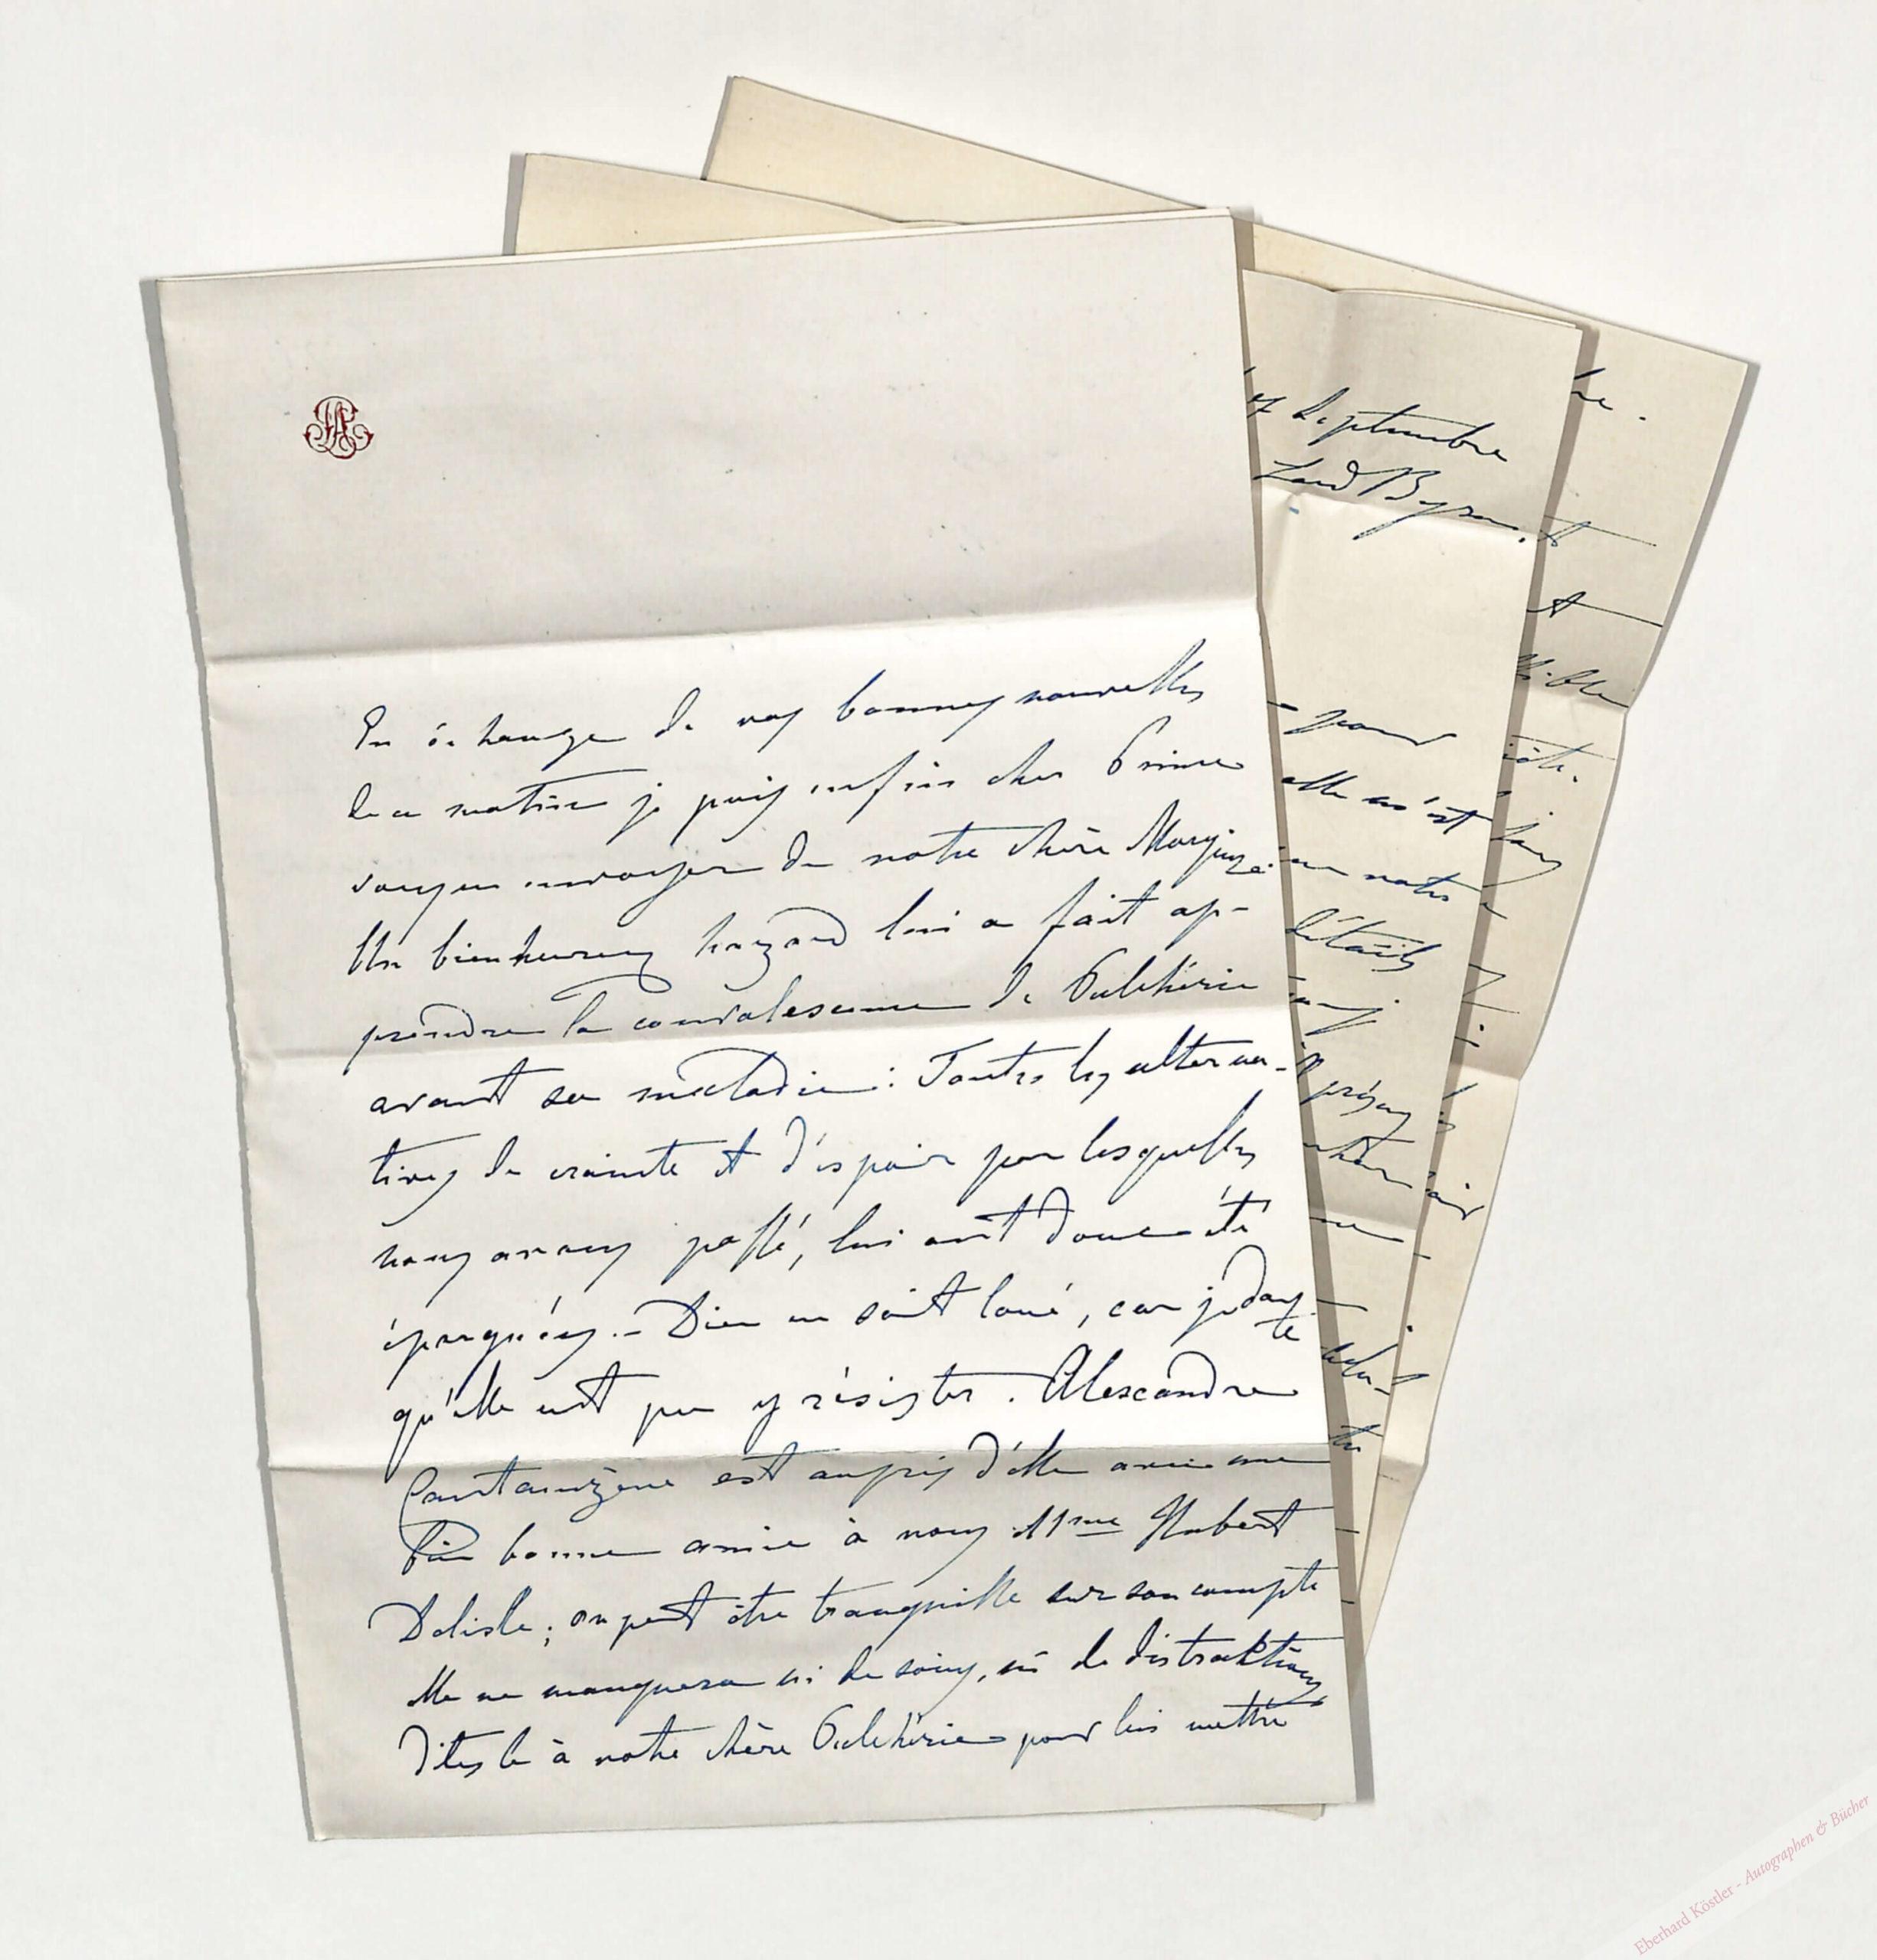 En échange de vos bonnes nouvelles
de ce matin je puis enfin cher Prince
vous en envoyer de notre chère Marquise.
Un bienheureux hazard lui a fait ap-
prendre la convalescence de Pulchérie
avant sa maladie: Toutes les alterna-
tives de crainte et d'espoir par lesquelles
nous avons passé, lui ont donc été
épargnées. — Dieu en soit loué, car je doute
qu'elle eut pu y résister. Alexandre
Cantacuzène est auprès d'elle avec une
bonne amie à nous Mme Hubert
Delisle; on peut être tranquille sur son compte
elle ne manquera ni de soins, ni de distraktions
Dites le à notre chère Pulchérie pour lui mettre
17 Septembre
Lord Byron.
pour
elle n'est
notre
détails
et
Eberhard Köstler - Autographen & Bücher